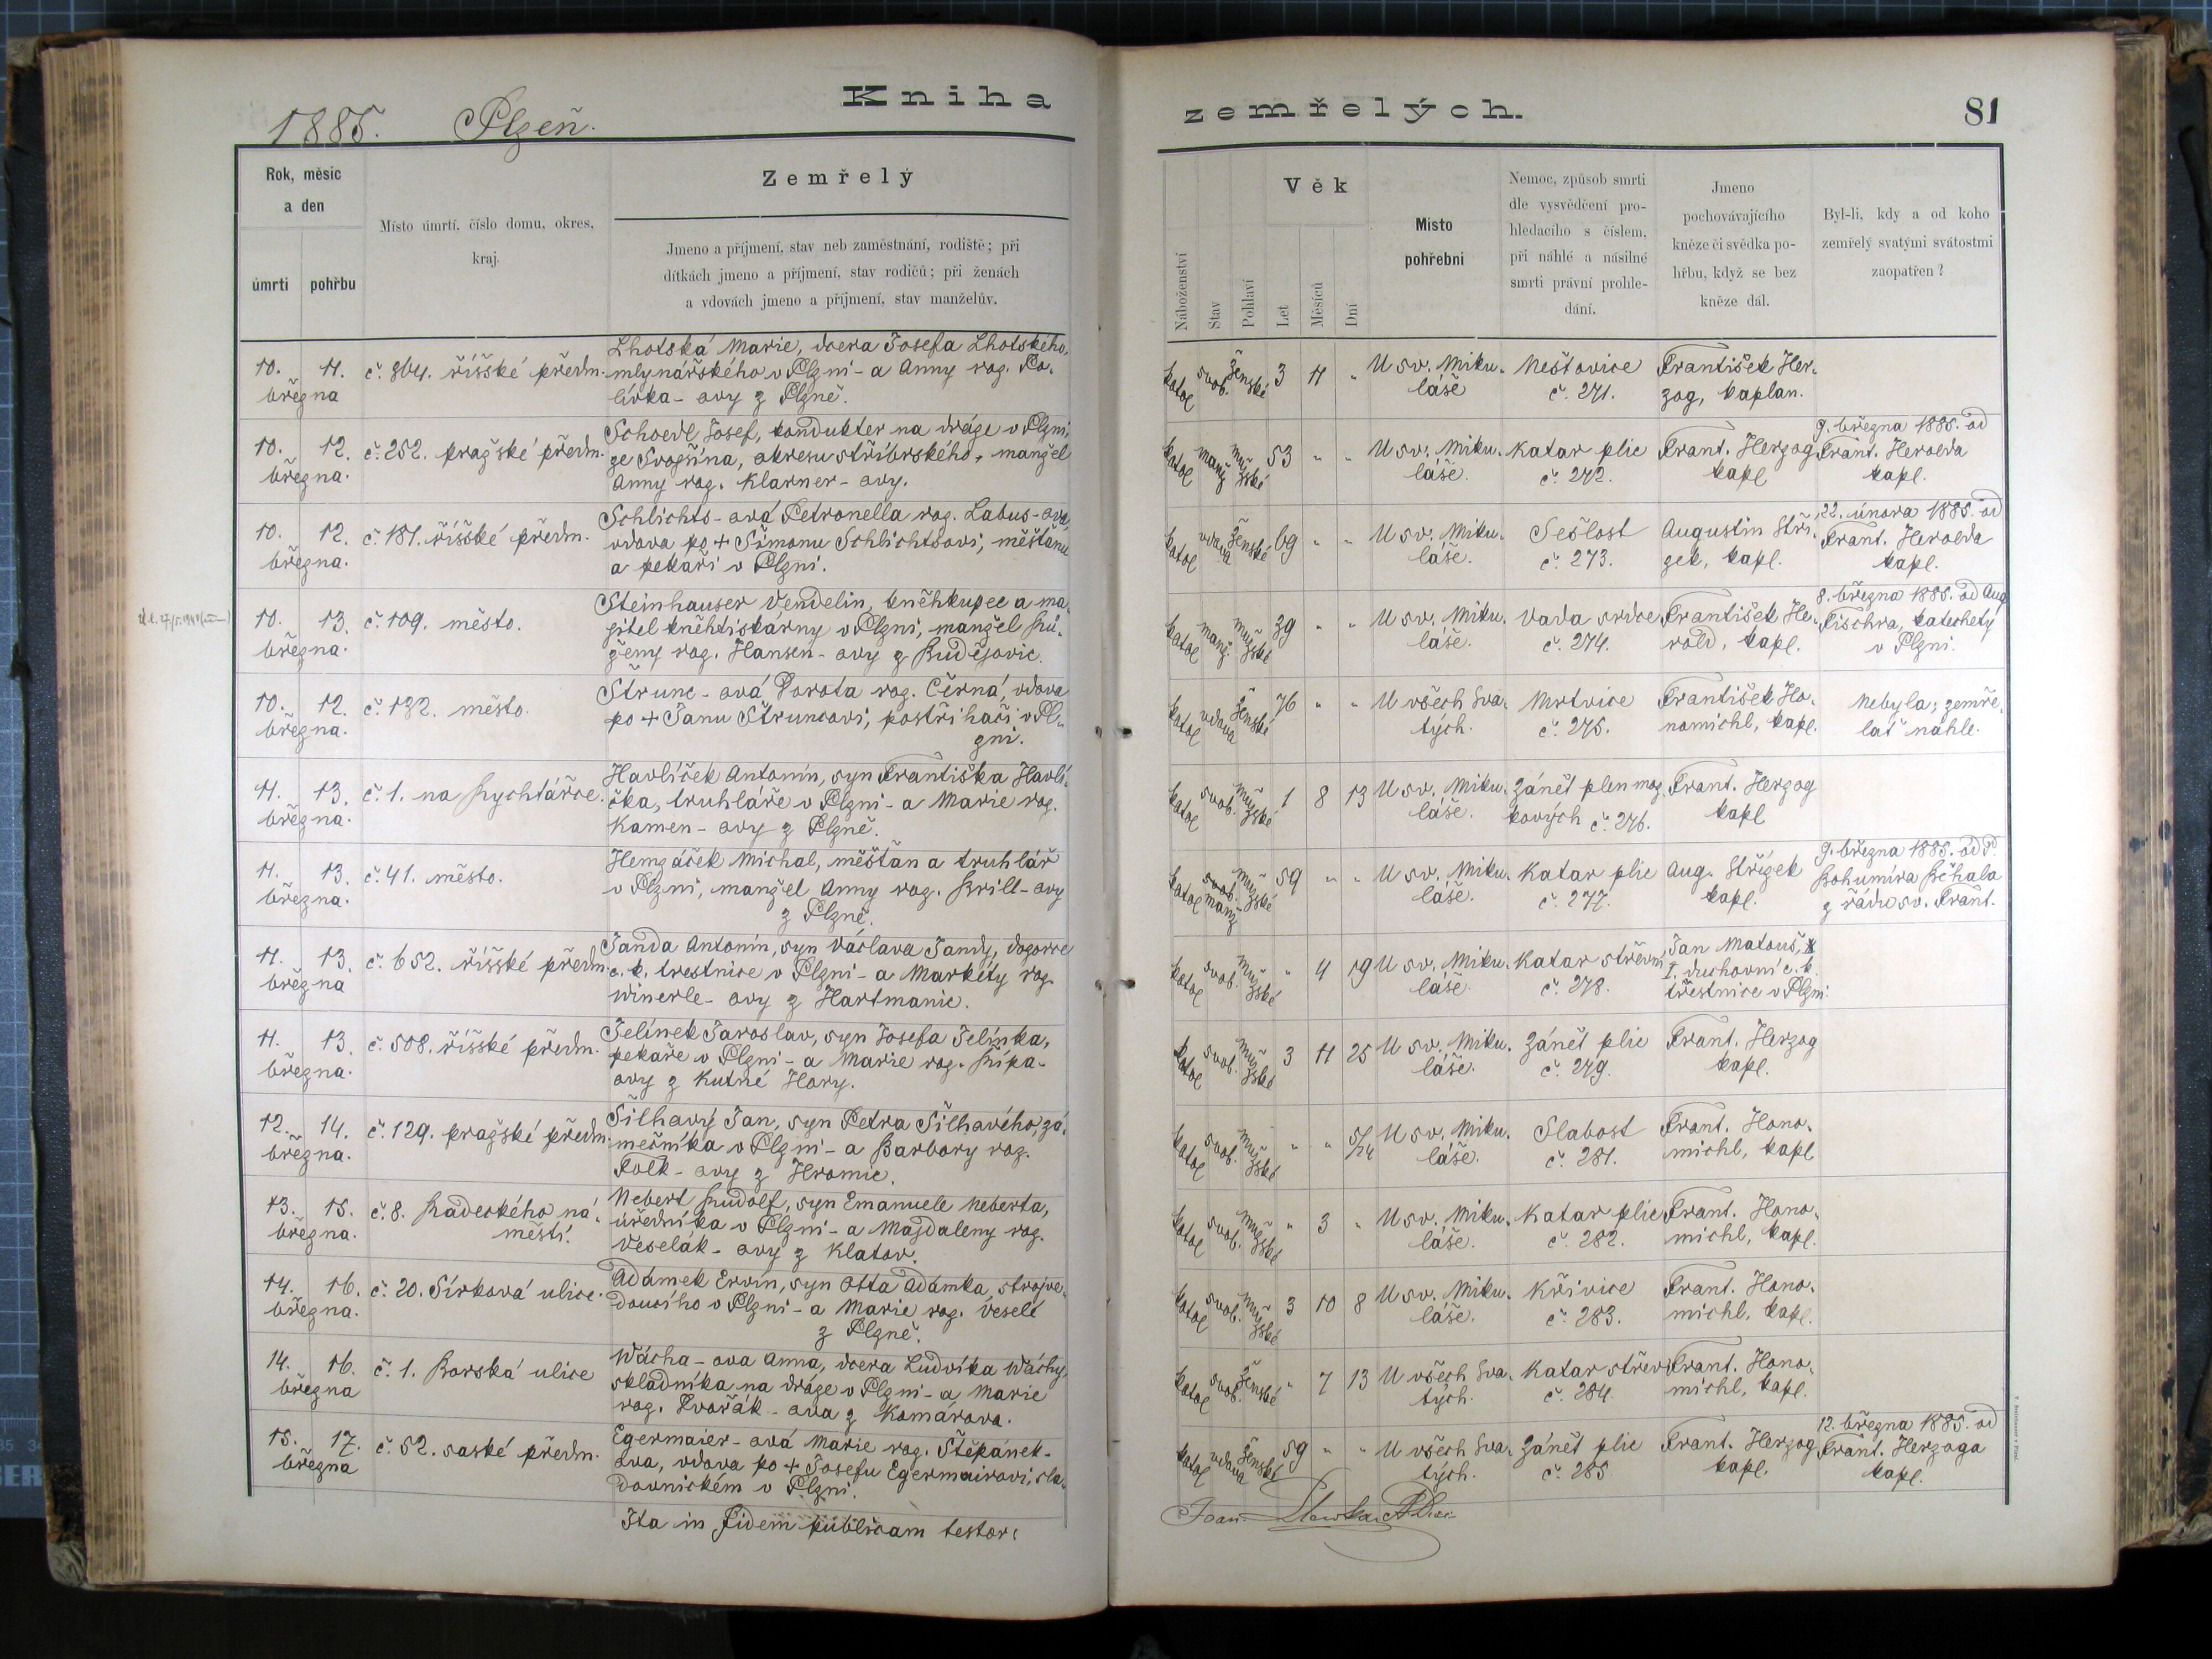 1885. Plzeň.
Kniha
Rok, měsíc
a den
úmrtí
pohřbu
Místo úmrtí, číslo domu, okres,
kraj.
Zemřelý
Jmeno a příjmení, stav neb zaměstnání, rodiště; při
dítkách jmeno a příjmení, stav rodičů; při ženách
a vdovách jmeno a příjmení, stav manželův.
10. 11.
března
č. 864. říšské předm.
Lhotská Marie, dcera Josefa Lhotského,
mlynářského v Plzni - a Anny roz. Po-
lívka - ovy z Plzně.
10. 12.
března.
č. 252. pražské předm.
Schoedl Josef, kondukter na dráze v Plzni,
ze Svojšína, okresu stříbrského, manžel
Anny roz. Klarner - ovy.
10. 12.
března.
č. 181. říšské předm.
Schlichts - ová Petronella roz. Labus - ova,
vdova po + Šimonu Schlichtsovi, měšťanu
a pekaři v Plzni.
10. 13.
března.
č. 109. město.
Steinhauser Vendelin, kněhkupec a ma-
jitel kněhtiskárny v Plzni, manžel Rů-
ženy roz. Hansen - ovy z Budějovic.
10. 12.
března.
č. 132. město.
Štrunc - ová Dorota roz. Černá, vdova
po + Janu Štruncovi, postřihači v Pl-
zni.
11. 13.
března.
č. 1. na Rychtářce.
Havlíček Antonín, syn Františka Havlí-
čka, truhláře v Plzni - a Marie roz.
Kamen - ovy z Plzně.
11. 13.
března.
č. 41. město.
Hemzáček Michal, měšťan a truhlář
v Plzni, manžel Anny roz. Brill - ovy
z Plzně.
11. 13.
března
č. 652. říšské předm.
Janda Antonín, syn Václava Jandy, dozorce
c. k. trestnice v Plzni - a Markéty roz.
Winerle - ovy z Hartmanic.
11. 13.
března.
č. 508. říšské předm.
Jelínek Jaroslav, syn Josefa Jelínka,
pekaře v Plzni - a Marie roz. Řípa-
ovy z Kutné Hory.
12. 14.
března.
č. 129. pražské předm.
Šilhavý Jan, syn Petra Šilhavého, zá-
mečníka v Plzni - a Barbory roz.
Folk - ovy z Hromic.
13. 15.
března.
č. 8. Radeckého ná-
městí.
Nebert Rudolf, syn Emanuele Neberta,
úředníka v Plzni - a Majdaleny roz.
Veselák - ovy z Klatov.
14. 16.
března.
č. 20. Sirková ulice.
Adámek Ervín, syn Otta Adámka, strojve-
doucího v Plzni - a Marie roz. Veselé
z Plzně.
14. 16.
března
č. 1. Borská ulice
Wácha - ova Anna, dcera Ludvíka Wáchy,
skladníka na dráze v Plzni - a Marie
roz. Dvořák - ova z Komárova.
15. 17.
března
č. 52. saské předm.
Egermaier - ová Marie roz. Štěpánek -
ova, vdova po + Josefu Egermairovi, sla-
dovnickém v Plzni.
Ita in fidem publicam testor:
zemřelých.
81
Náboženství
Stav
Pohlaví
Věk
Let
Měsíců
Dní
Místo
pohřební
Nemoc, způsob smrti
dle vysvědčení pro-
hledacího s číslem,
při náhlé a násilné
smrti právní prohle-
dání.
Jmeno
pochovávajícího
kněze či svědka po-
hřbu, když se bez
kněze dál.
Byl-li, kdy a od koho
zemřelý svatými svátostmi
zaopatřen?
katol svob. ženské 3 11 "
U sv. Miku-
láše
Neštovice
č. 271.
František Her-
zog, kaplan.
katol manž mužské 53 " "
U sv. Miku-
láše.
Katar plic
č. 272.
Frant. Herzog
kapl
9. března 1885. od
Frant. Herolda
kapl.
katol vdova ženské 69 " "
U sv. Miku-
láše.
Sešlost
č. 273.
Augustin Stří-
zek, kapl.
22. února 1885. od
Frant. Herolda
kapl.
katol manž. mužské 39 " "
U sv. Miku-
láše.
Vada srdce
č. 274.
František He-
rold, kapl.
8. března 1885. od Aug
Fischra, katechety
v Plzni.
katol vdova ženské 76 " "
U všech Sva-
tých.
Mrtvice
č. 275.
František Ho-
nomichl, kapl.
Nebyla; zemře-
lať náhle.
katol svob. mužské 1 8 13
U sv. Miku-
láše.
Zánět plen moz-
kových č. 276.
Frant. Herzog
kapl
katol svob. manž mužské 59 " "
U sv. Miku-
láše.
Katar plic
č. 277.
Aug. Střízek
kapl.
9. března 1885. od P.
Bohumíra Běhala
z řádu sv. Frant.
katol svob. mužské " 4 19
U sv. Miku-
láše.
Katar střevní
č. 278.
Jan Matouš,
I. duchovní c. k.
trestnice v Plzni
katol svob. mužské 3 11 25
U sv. Miku-
láše.
Zánět plic
č. 279.
Frant. Herzog
kapl.
katol svob. mužské " " 5/24
U sv. Miku-
láše.
Slabost
č. 281.
Frant. Hono-
michl, kapl
katol svob. mužské " 3 "
U sv. Miku-
láše.
Katar plic
č. 282.
Frant. Hono-
michl, kapl.
katol svob. mužské 3 10 8
U sv. Miku-
láše.
Křivice
č. 283.
Frant. Hono-
michl, kapl.
katol svob. ženské " 7 13
U všech Sva-
tých.
Katar střev
č. 284.
Frant. Hono-
michl, kapl.
katol vdova ženské 59 " "
U všech Sva-
tých.
Zánět plic
č. 285.
Frant. Herzog
kapl.
12. března 1885. od
Frant. Herzoga
kapl.
Joan.